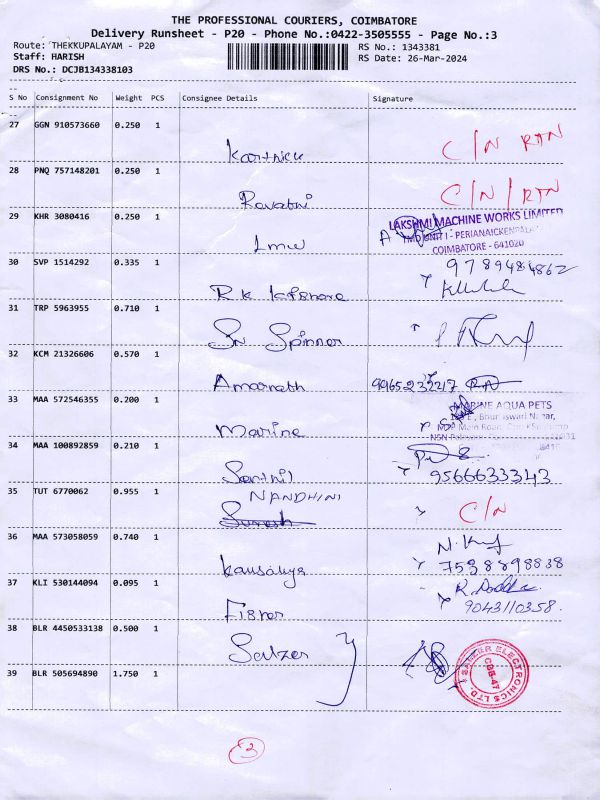 THE PROFESSIONAL COURIERS, COIMBATORE
Delivery Runsheet - P20 - Phone No.:0422-3505555 - Page No.:3
Route: THEKKUPALAYAM - P20
RS No.: 1343381
Staff: HARISH
RS Date: 26-Mar-2024
DRS No.: DCJB134338103
S No Consignment No Weight PCS Consignee Details Signature
27 GGN 910573660 0.250 1
Karthick C/N RTN
28 PNQ 757148201 0.250 1
Revathi C/N/RTN
29 KHR 3080416 0.250 1
LAKSHMI MACHINE WORKS LIMITED
UNIT I - PERIANAICKENPALA
COIMBATORE - 641020
Lmw
30 SVP 1514292 0.335 1
9789484862
RK Kishore
31 TRP 5963955 0.710 1
Sri Spinner
32 KCM 21326606 0.570 1
Amarnath
33 MAA 572546355 0.200 1
MARINE AQUA PETS
Marine
34 MAA 100892859 0.210 1
Senthil 9566633343
35 TUT 6770062 0.955 1
NANDHINI
Suresh C/N
36 MAA 573058059 0.740 1
Kausalya 7538898838
37 KLI 530144094 0.095 1
Fisher 9043110358.
38 BLR 4450533138 0.500 1
Salzer
39 BLR 505694890 1.750 1
SALZER ELECTRONICS LTD
CBE-47
3